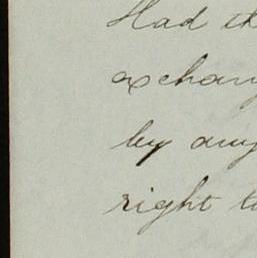 Had th
exchang
by any
right t